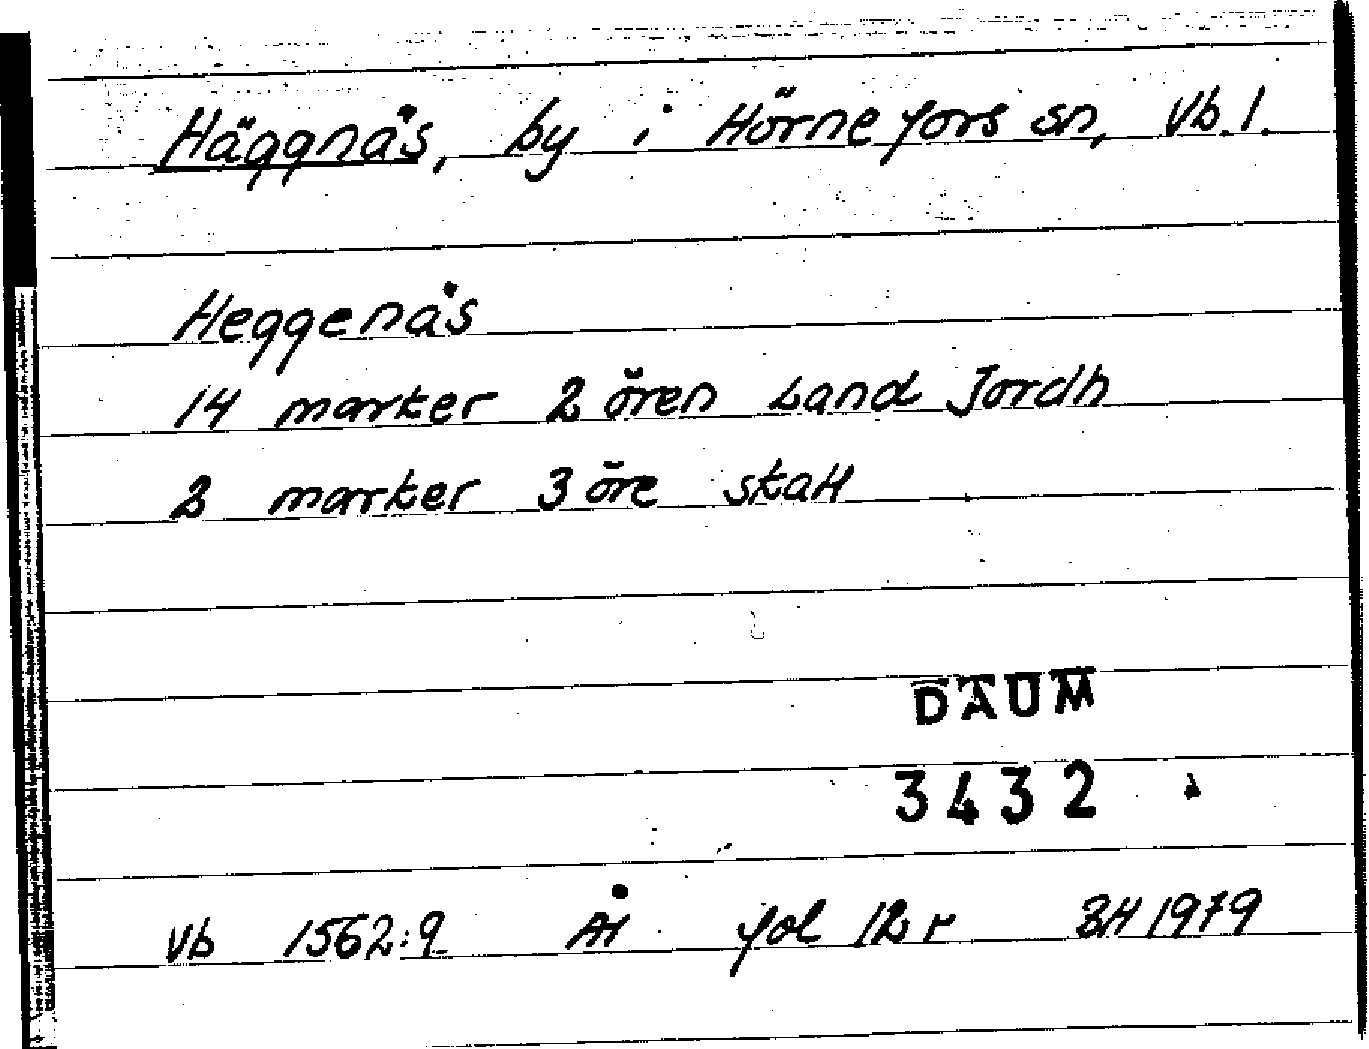 Häggnäs, by i Hörnefors sn, Vb.l.
Heggenäs
14 marker 2 ören Land Jordh
2 marker 3 öre skatt
DAUM
3432
Vb 1562:9 År fol 12 r BH 1979